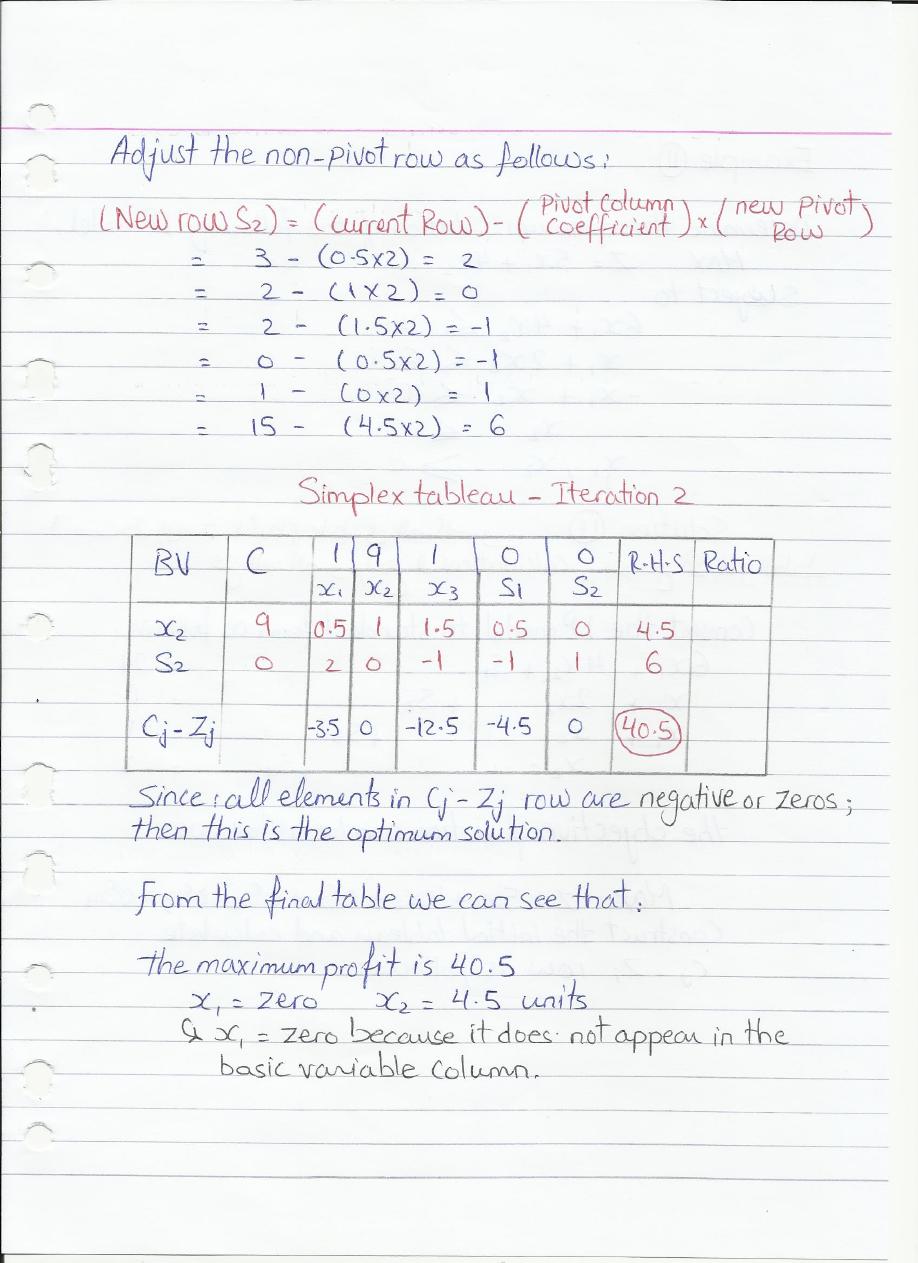 Adjust the non-pivot row as follows:
(New row S2) = (current Row) - (Pivot Column coefficient) × (new Pivot Row)
= 3 - (0.5×2) = 2
= 2 - (1×2) = 0
= 2 - (1.5×2) = -1
= 0 - (0.5×2) = -1
= 1 - (0×2) = 1
= 15 - (4.5×2) = 6
Simplex tableau - Iteration 2
BV C 1 9 1 0 0 R.H.S Ratio
x1 x2 x3 S1 S2
x2 9 0.5 1 1.5 0.5 0 4.5
S2 0 2 0 -1 -1 1 6
Cj-Zj -3.5 0 -12.5 -4.5 0 40.5
Since: all elements in Cj-Zj row are negative or zeros;
then this is the optimum solution.
from the final table we can see that:
the maximum profit is 40.5
x1 = zero x2 = 4.5 units
& x1 = zero because it does not appear in the
basic variable column.